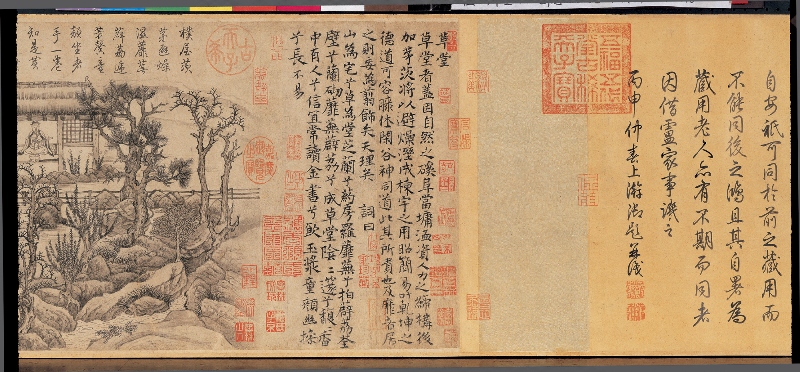 自安祇可同於前之藏用而
不能同後之鴻且其自署為
藏用老人亦有不期而同者
因借盧家事識之
丙申仲春上澣御題并識
五福五代堂古稀天子寶
草堂
草堂者蓋因自然之磎阜當墉洫資人力之締搆後
加茅茨將以避燥溼成棟宇之用昭簡易叶乾坤之
德道可容膝休閑谷神同道此其所貴也及靡者居
之則妄為翦飾失天理矣 詞曰
山為宅兮草為堂芝蘭兮藥房羅蘼蕪兮拍薜荔荃
壁兮蘭砌蘼蕪薜荔兮成草堂陰陰邃兮馥馥香
中有人兮信宜常讀金書兮飲玉漿童顏幽操
兮長不易
古希天子
樸屋茨
茅避燥
溼蘼蕪
薜荔遶
芳馨童
顏坐者
手一卷
知是黃